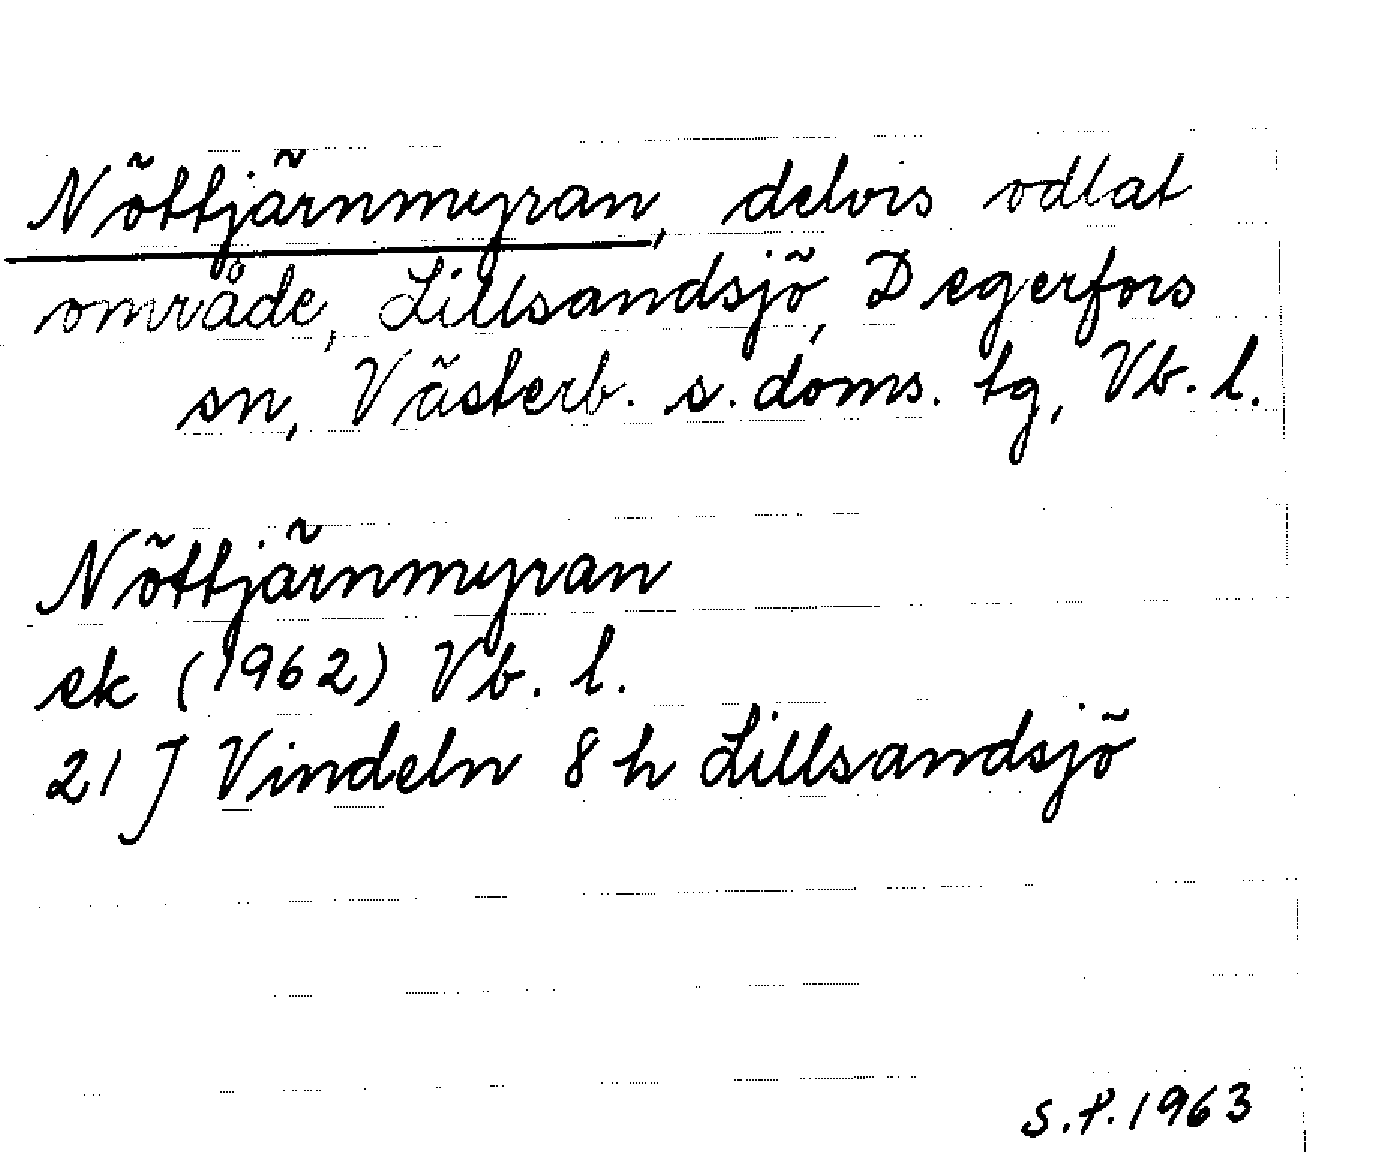 Nöttjärnmyran, delvis odlat
område, Lillsandsjö, Degerfors
sn, Västerb. s. doms. tg, Vb. l.
Nöttjärnmyran
ek (1962) Vb. l.
21 J Vindeln 8 h Lillsandsjö
S.P. 1963